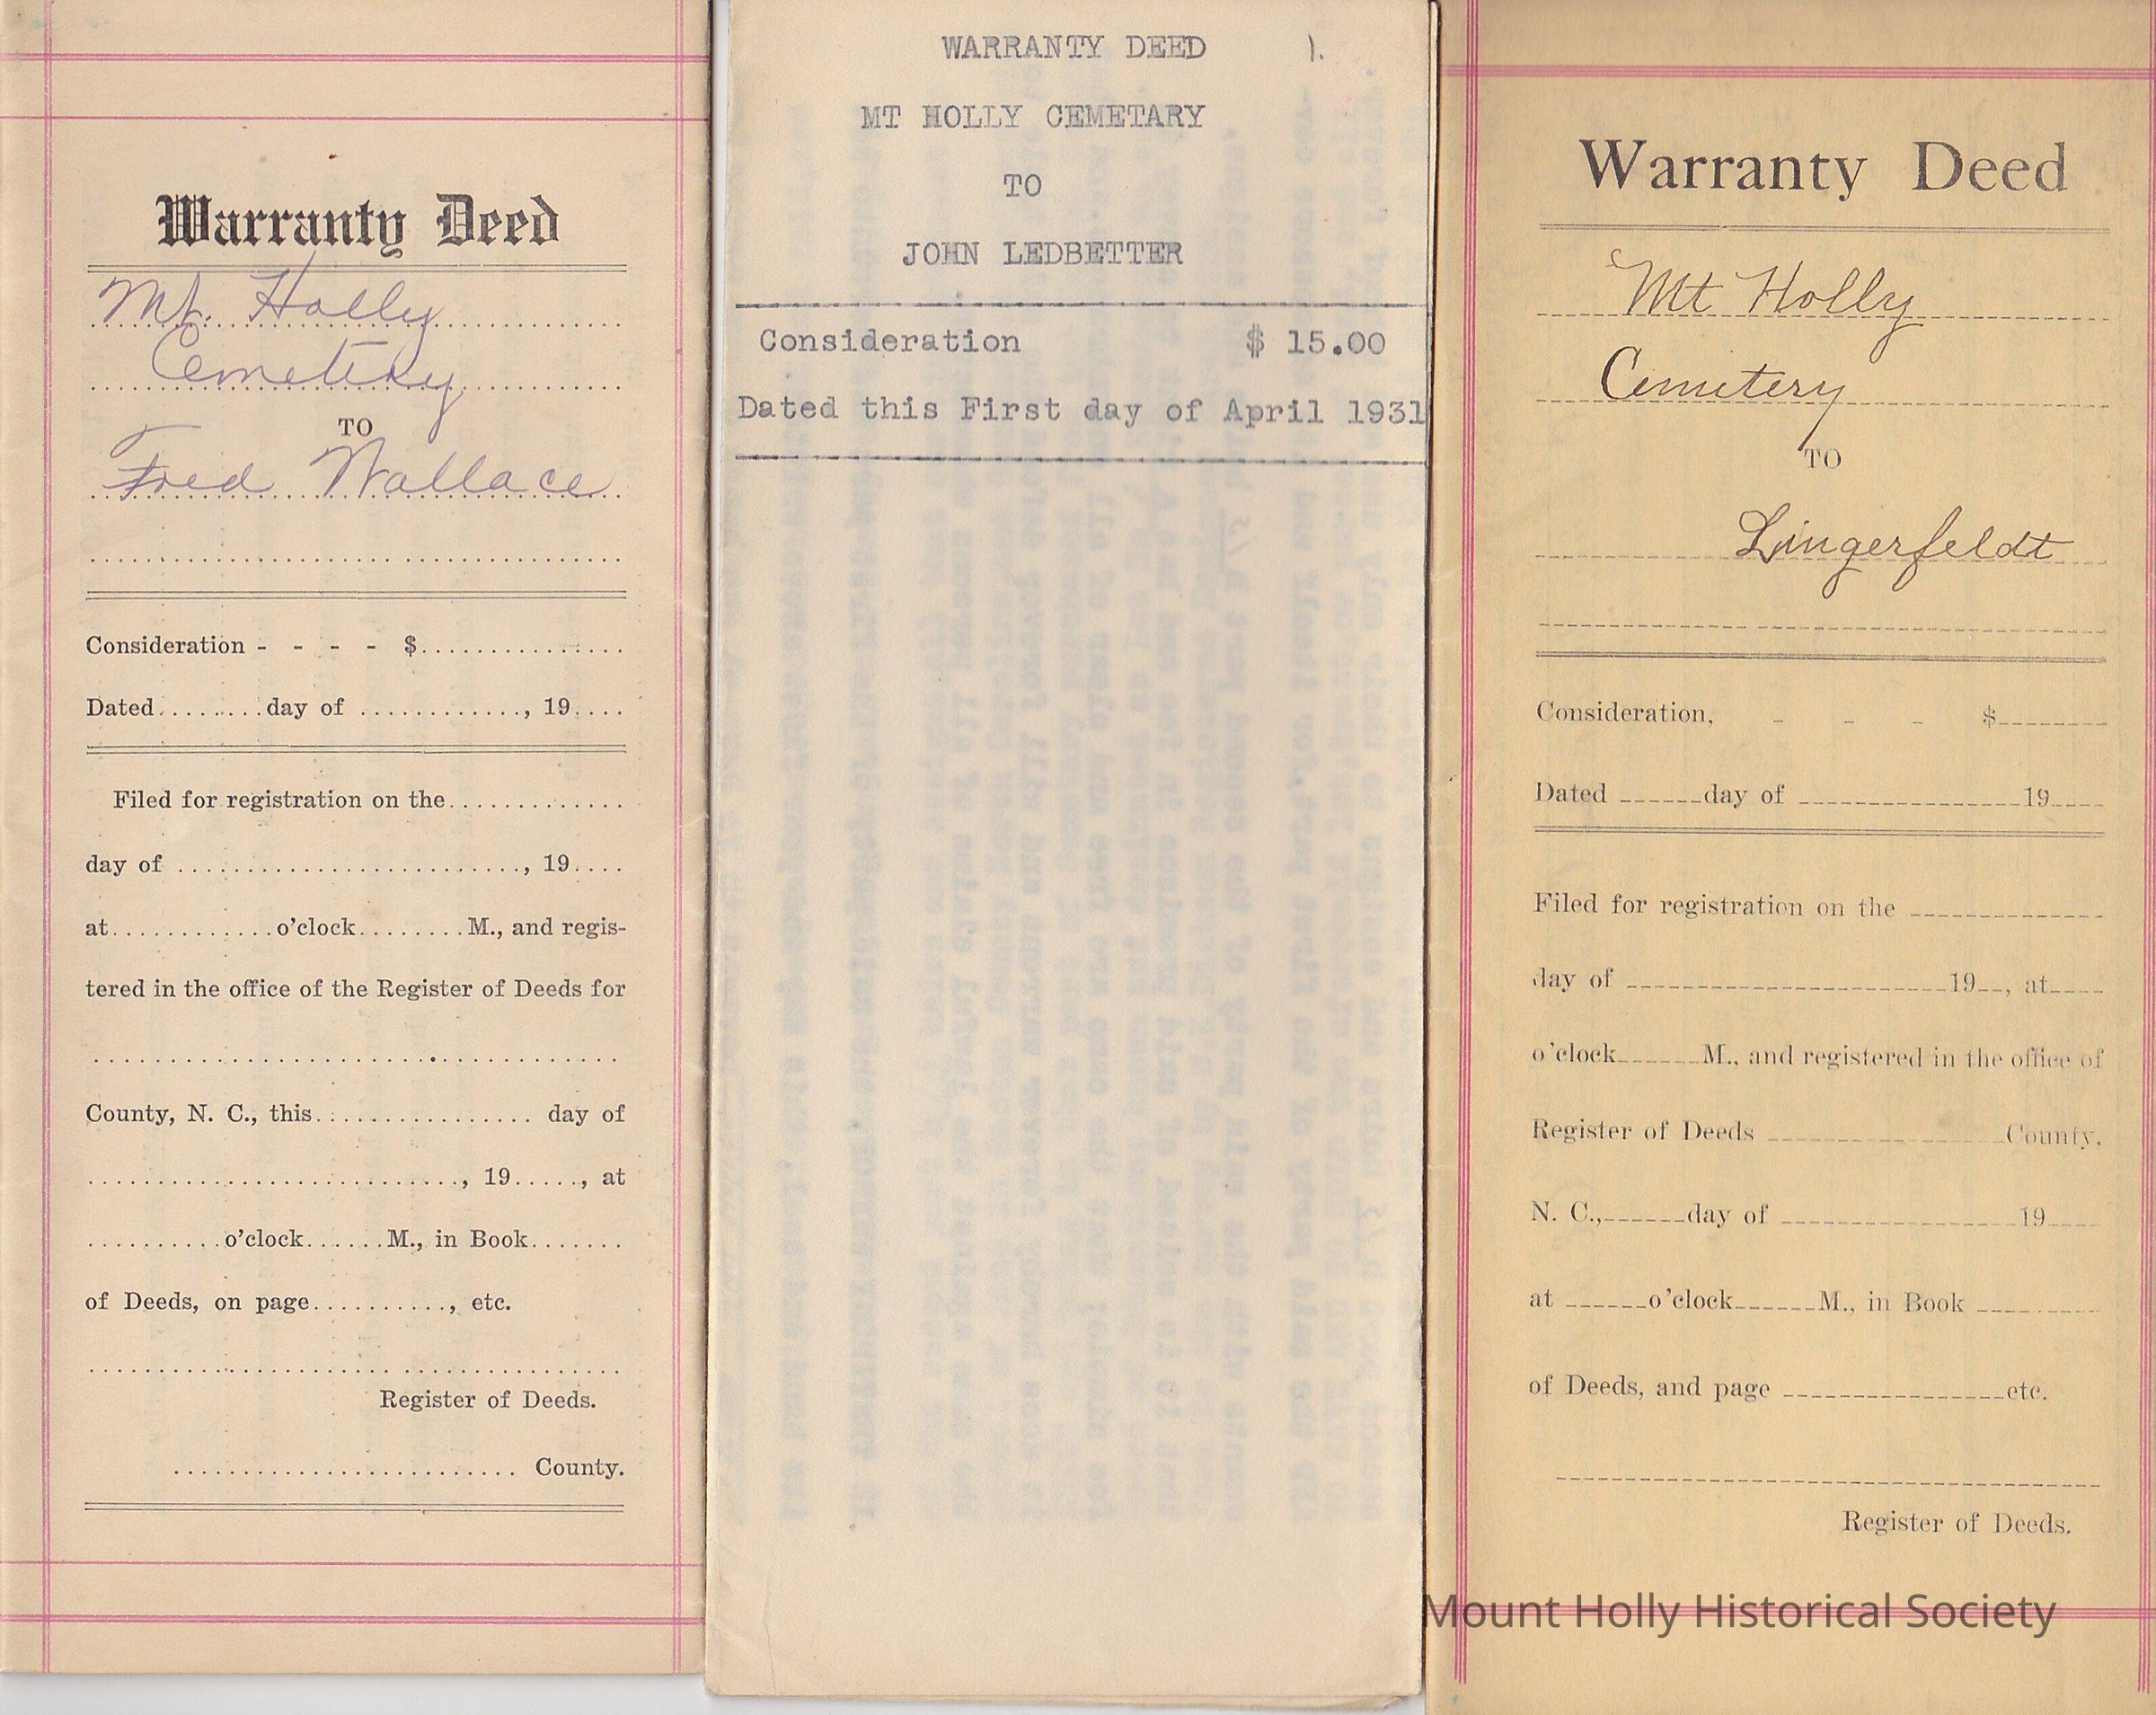 Warranty Deed
Mt. Holly
Cemetery
TO
Fred Wallace
Consideration - - - - $
Dated........day of ............, 19....
Filed for registration on the.............
day of ........................., 19....
at............o'clock........M., and regis-
tered in the office of the Register of Deeds for
County, N. C., this................ day of
..........................., 19....., at
..........o'clock......M., in Book.......
of Deeds, on page.........., etc.
Register of Deeds.
......................... County.
WARRANTY DEED ).
MT HOLLY CEMETARY
TO
JOHN LEDBETTER
Consideration $ 15.00
Dated this First day of April 1931
Warranty Deed
Mt Holly
Cemetery
TO
Lingerfeldt
Consideration, - - - $--------
Dated ------day of ----------------19----
Filed for registration on the --------------
day of -----------------------19--, at----
o'clock------M., and registered in the office of
Register of Deeds -----------------County,
N. C.,------day of -----------------19----
at ------o'clock------M., in Book ---------
of Deeds, and page ----------------etc.
Register of Deeds.
Mount Holly Historical Society